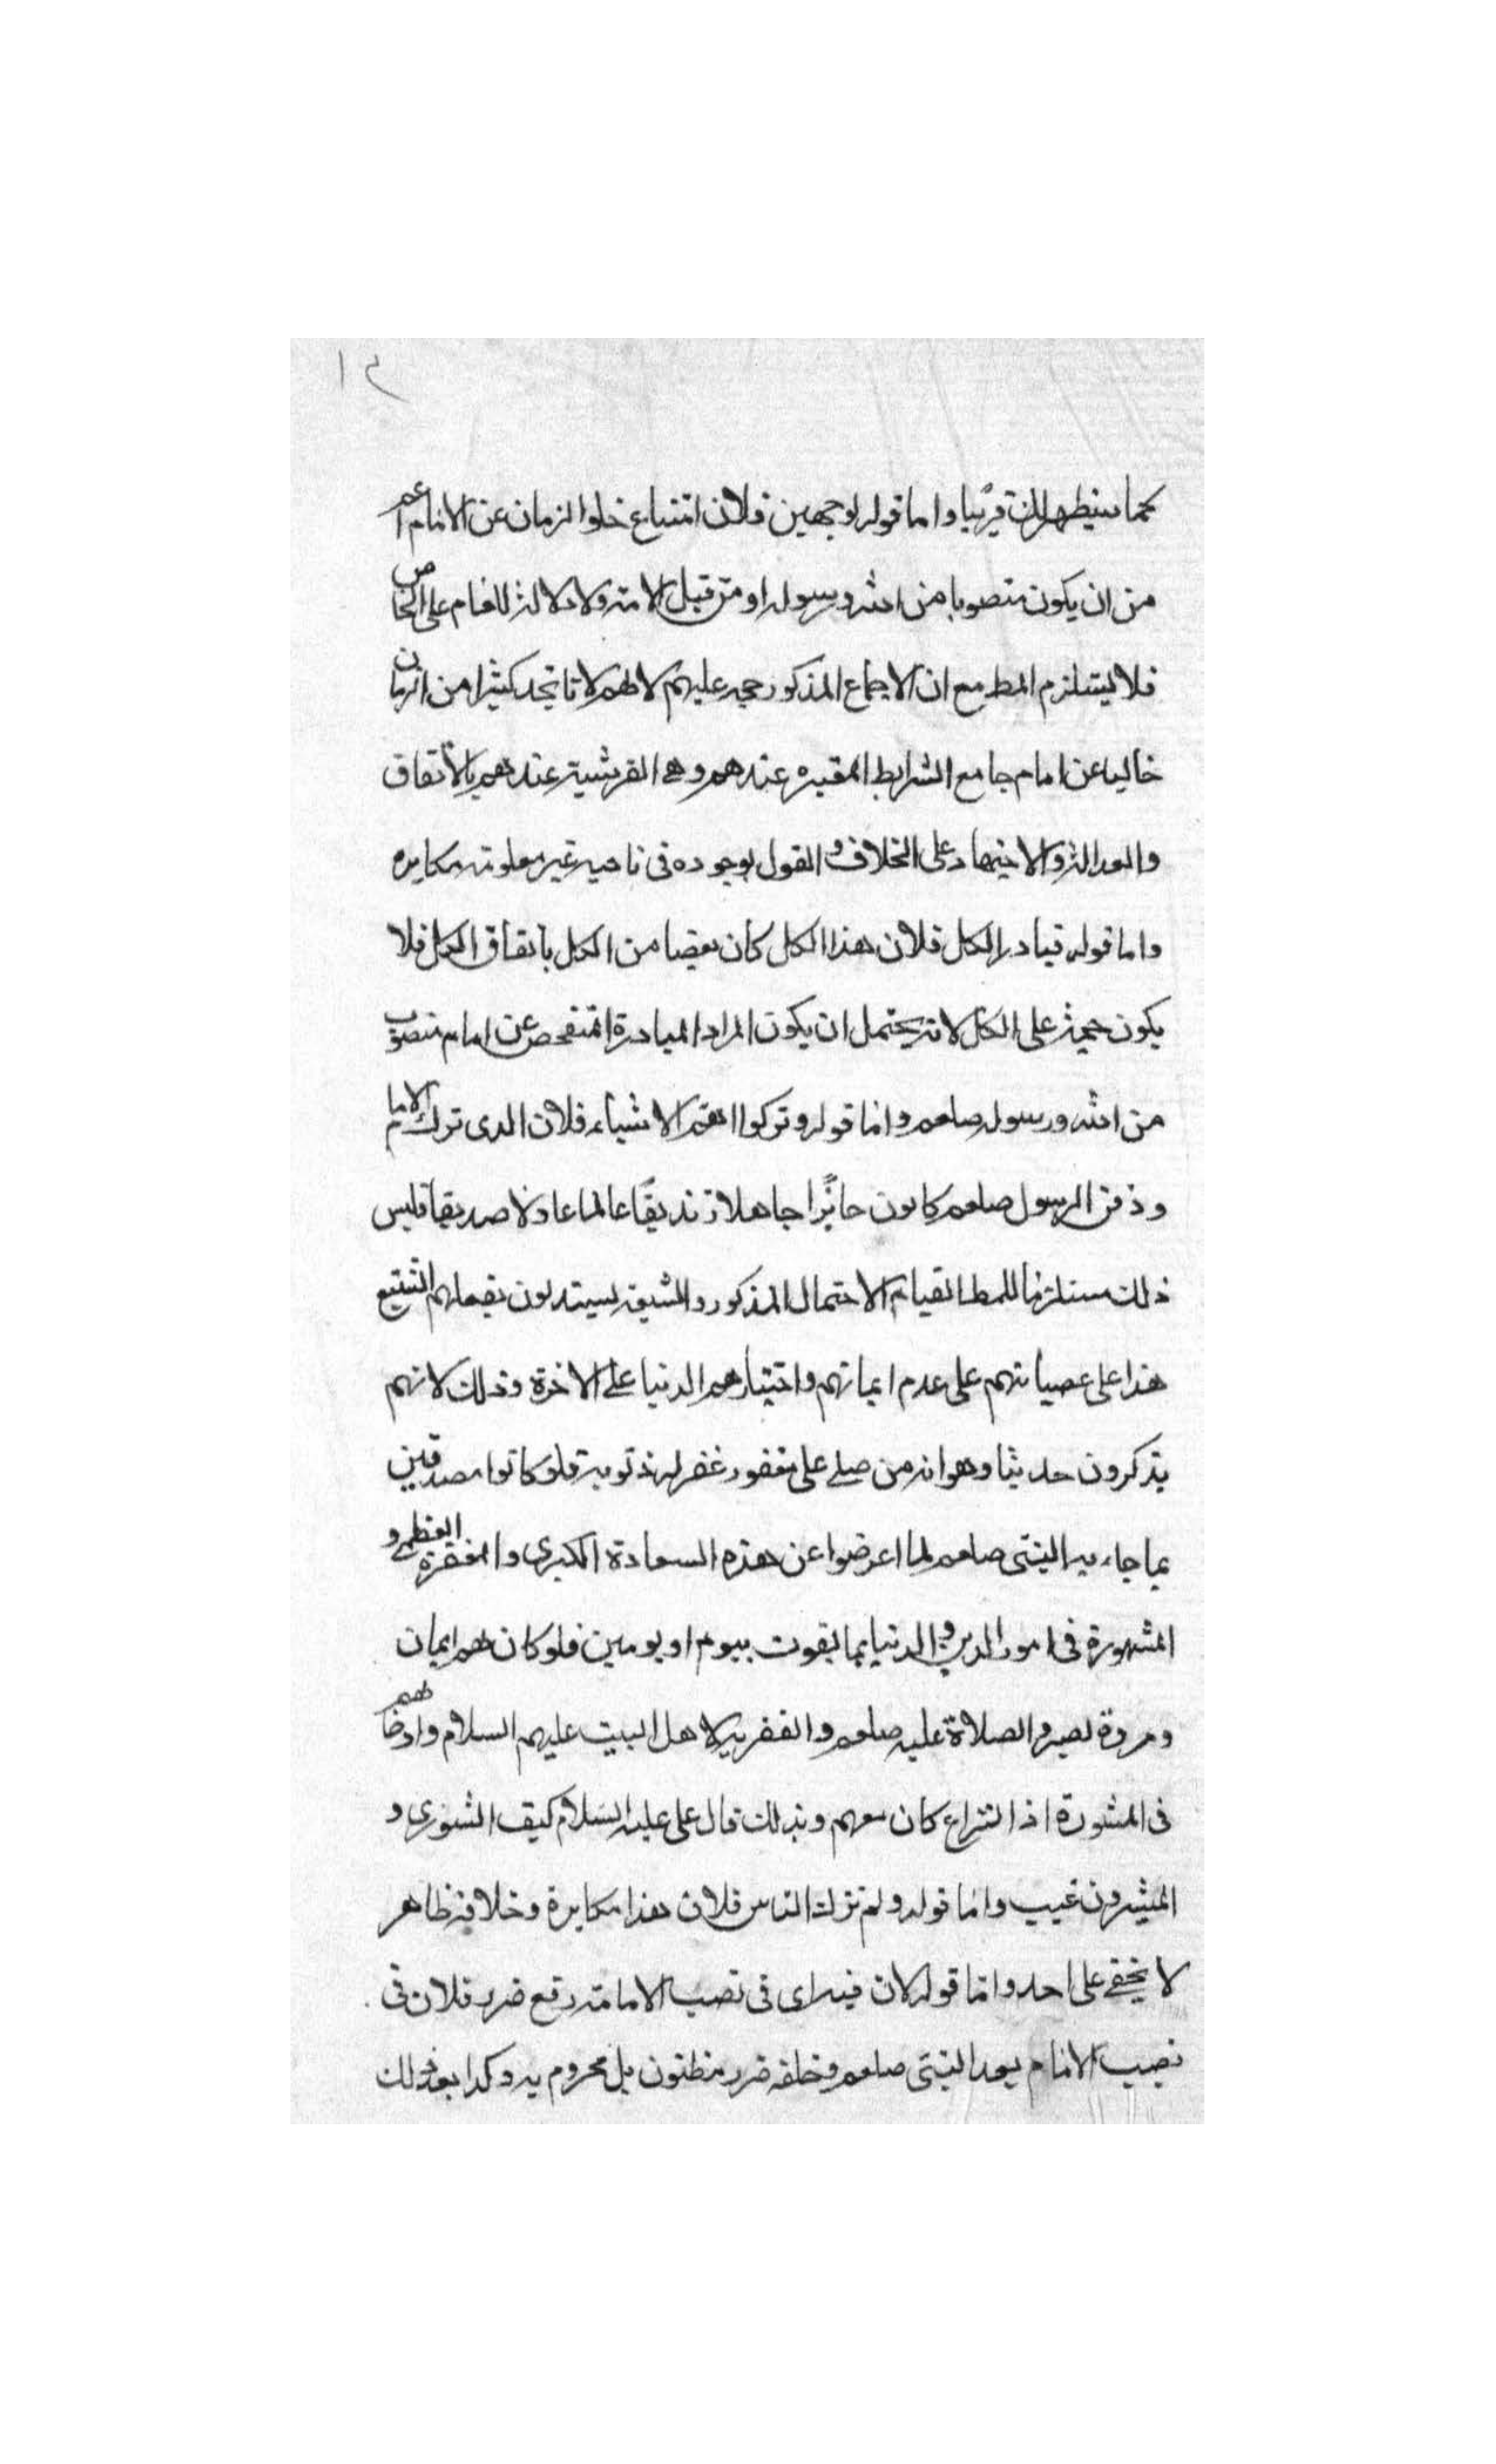 ١٢
كما سيظهر لك قريبا واما قوله لوجهين فلان امتناع خلو الزمان عن الامام اعم
من ان يكون منصوبا من الله ورسوله او من قبل الامة ولا دلالة للعام على الخاص
فلا يستلزم المط مع ان الاجماع المذكور حجه عليهم لا لهم لانا نجد كثيرا من الزمان
خاليا عن امام جامع الشرايط المعتبره عندهم وهى القرشية عندهم بالاتفاق
والعدالة والاجتهاد على الخلاف و القول بوجوده فى ناحيه غير معلومة مكابره
واما قوله فبادر الكل فلان هذا الكل كان بعضا من الكل باتفاق الكل فلا
يكون حجة على الكل لانه يحتمل ان يكون المراد المبادرة التفحص عن امام منصوب
من الله ورسوله صلعم واما قوله وتركوا اهم الاشياء فلان الذى ترك الامام
ودفن الرسول صلعم كانوا جائرا جاهلا زنديقا عالما عادلا صديقا فليس
ذلك مستلزما للمط لقيام الاحتمال المذكور والشيعة يستدلون بفعلهم الشنيع
هذا على عصيانهم على عدم ايمانهم واختيارهم الدنيا على الاخرة وذلك لانهم
يذكرون حديثا وهو انه من صلى على مغفور غفر له ذنوبه فلو كانوا مصدقين
بما جاء به النبى صلعم لما اعرضوا عن هذه السعادة الكبرى والمغفرة العظمى و
المشورة فى امور الدين و الدنيا بما يفوت بيوم او يومين فلو كان لهم ايمان
ومروة لصبروا الصلاة عليه صلعم والتعزية لاهل البيت عليهم السلام وارضاهم
فى المشورة اذ النزاع كان معهم وبذلك قال على عليه السلام كيف الشورى و
المشيرون غيب واما قوله ولم تزل الناس فلان هذا مكابرة وخلافه ظاهر
لا يخفى على احد واما قوله لان فيه اى فى نصب الامامة دفع ضرر فلان فى
نصب الامام بعد النبى صلعم وخلفه ضرر مظنون بل مجزوم به وكذا بعد ذلك